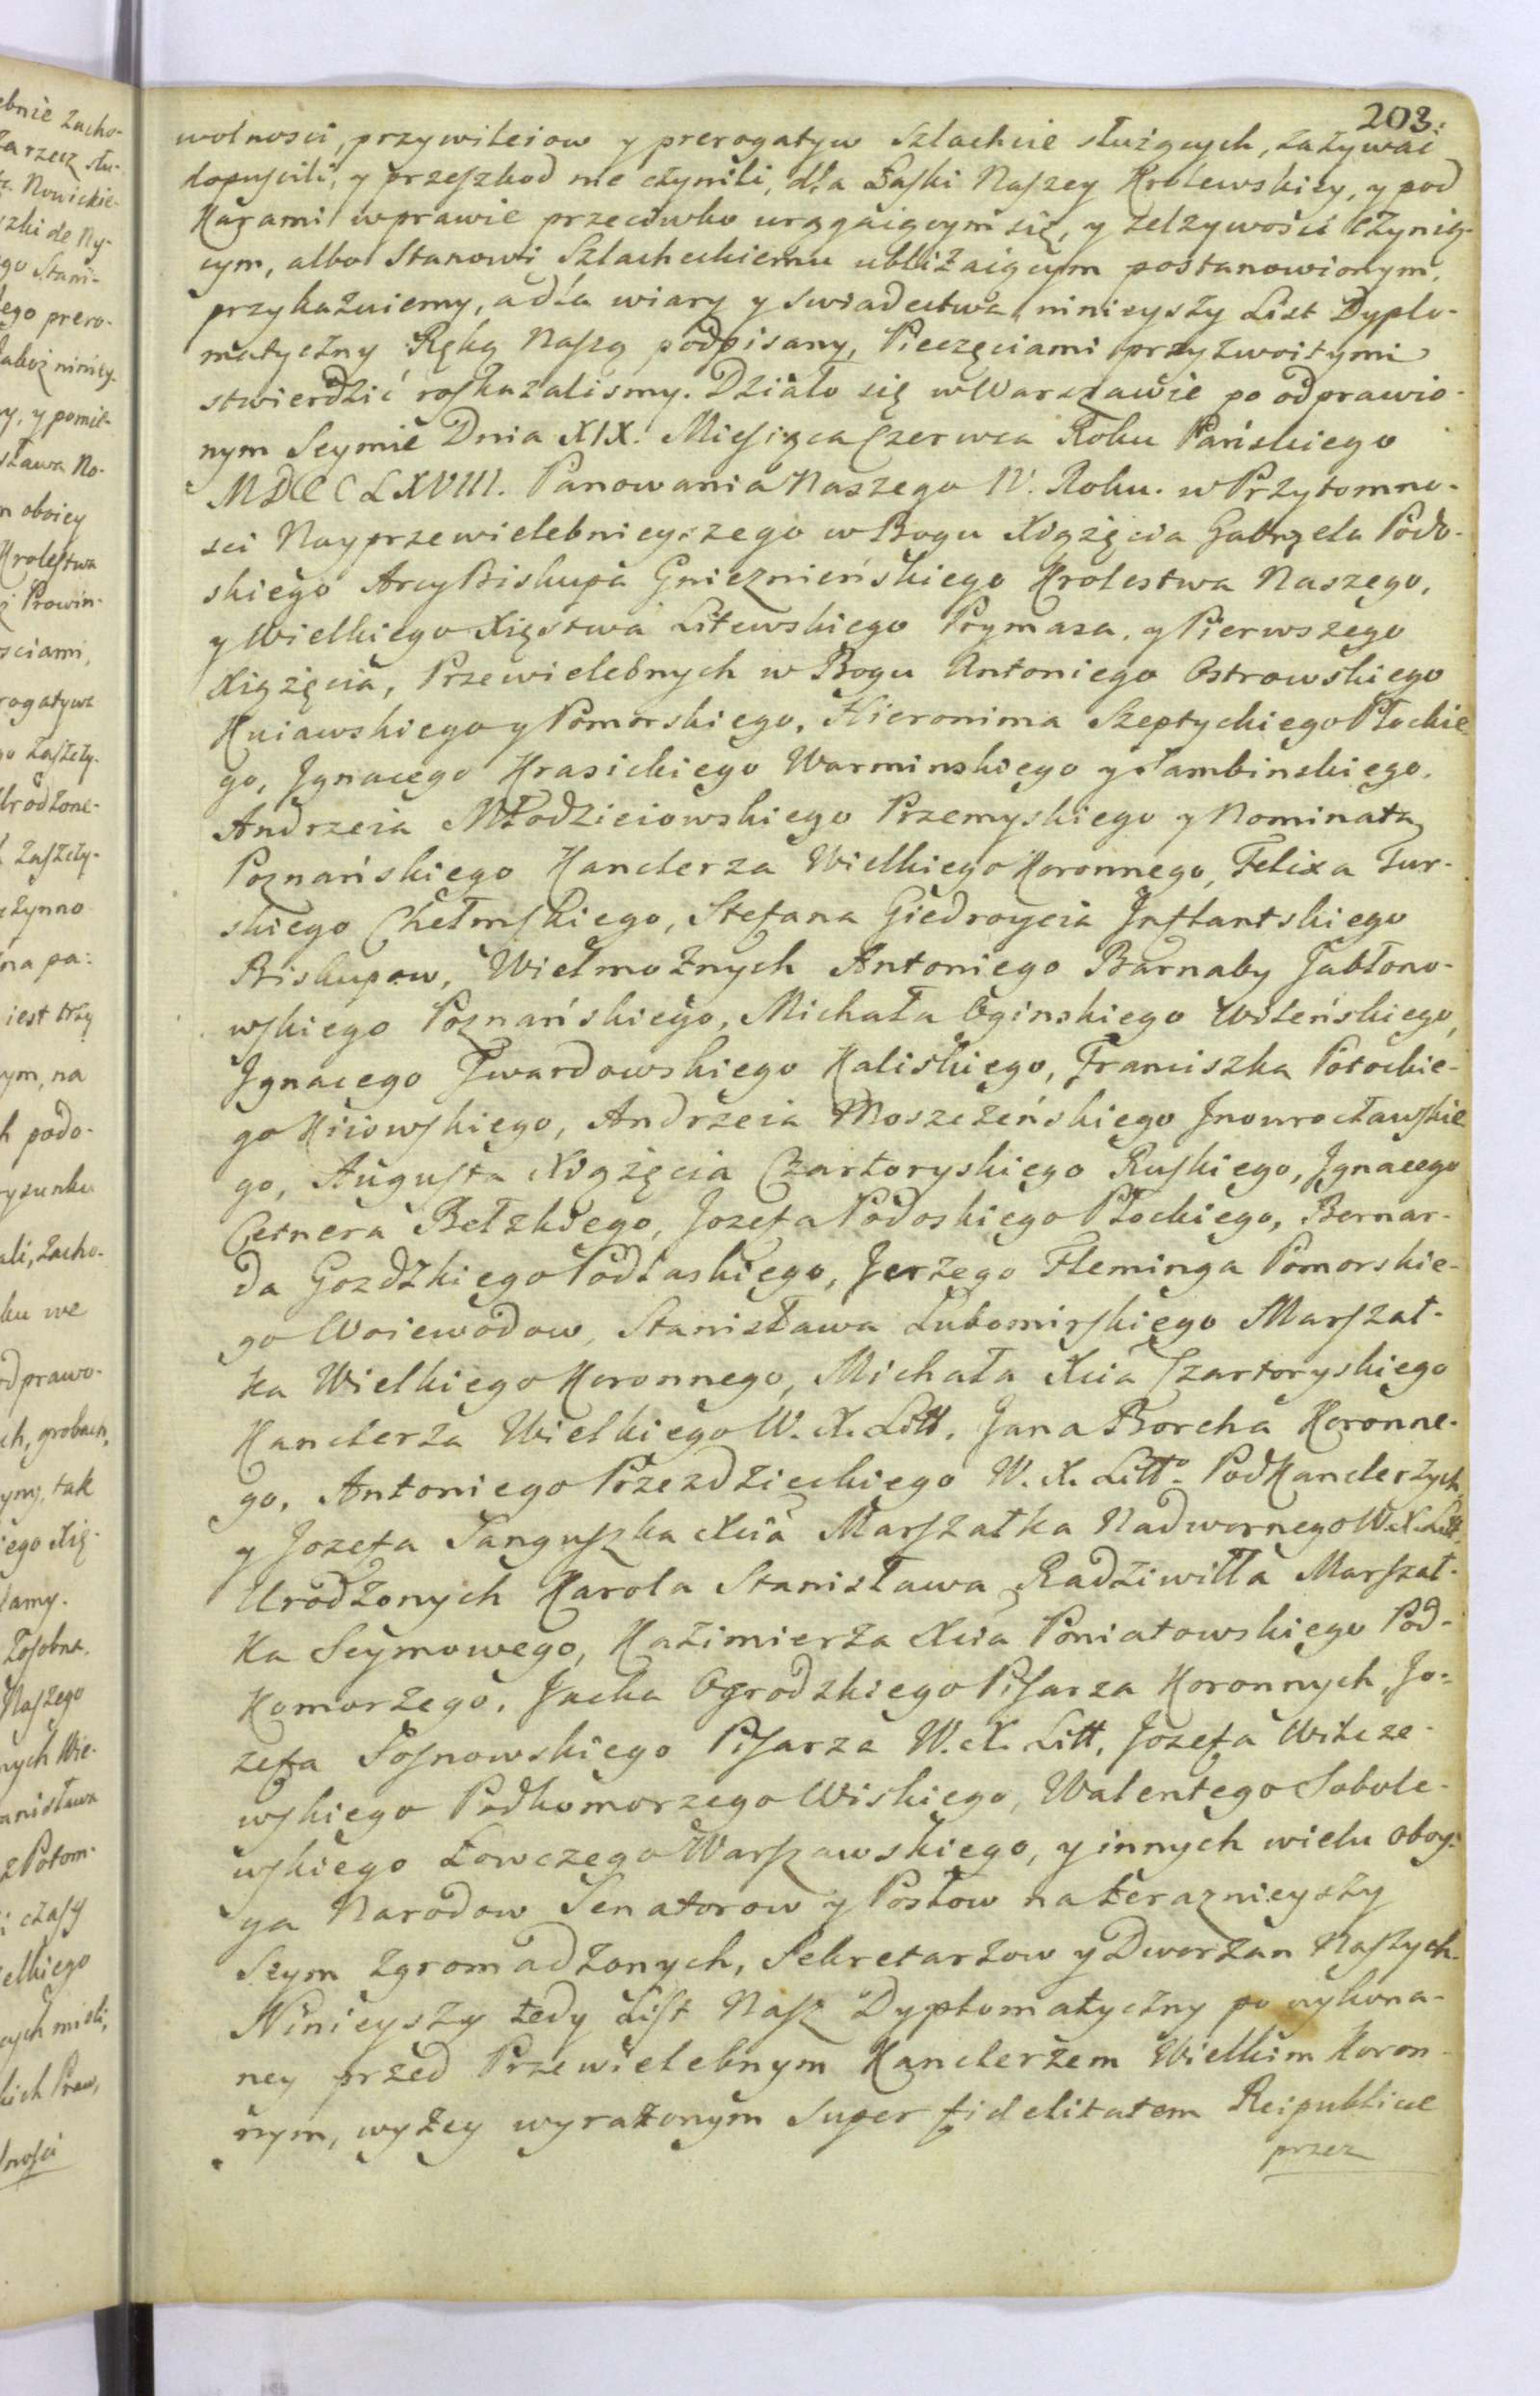 203.
wolnosci, przywileiow y prerogatyw Szlachcie służących, zażywać
dopuścili, y przeſzkod nie czynili, dla Łaſki Naſzey Krolewskiey, y pod
Karami w prawie przeciwko urągaiącym się, y zelżywości czynią-
cym, albo Stanowi Szlacheckiemu ubliżaiącym postanowionym,
przykazuiemy, a dla wiary y swiadectwa, ninieyszy List Dyplo-
matyczny Ręką Naſzą podpisany, Pieczęciami przyzwoitymi
stwierdzić roſkazalismy. Działo się w Warszawie po odprawio-
nym Seymie Dnia XIX. Mieſiąca Czerwca Roku Pańskiego
MDCCLXVIII. Panowania Naszego IV. Roku. w Przytomno-
sci Nayprzewielebnieyszego w Bogu Xiążęcia Gabryela Podo-
skiego ArcyBiskupa Gnieznieńskiego Krolestwa Naszego,
y Wielkiego Xięstwa Litewskiego Prymasa, y Pierwszego
Xiążęcia, Przewielebnych w Bogu Antoniego Ostrowskiego
Kuiawskiego y Pomorskiego, Hieronima Szeptyckiego Płockie
go, Jgnacego Krasickiego Warminskiego y Sambinskiego,
Andrzeia Młodzieiowskiego Przemyskiego y Nominata
Poznańskiego Kanclerza Wielkiego Koronnego, Felixa Tur-
skiego Chełmſkiego, Stefana Giedroycia Jnflantskiego
Biskupow, Wielmożnych Antoniego Barnaby Jabłono-
wſkiego Poznańskiego, Michała Oginskiego Wileńskiego,
Jgnacego Twardowskiego Kaliskiego, Franciszka Potockie-
go Kiiowſkiego, Andrzeia Moszczeńskiego Jnowrocławſkie
go, Auguſta Xiążęcia Czartoryskiego Ruſkiego, Jgnacego
Cetnera Bełzkiego, Jozefa Podoskiego Płockiego, Bernar-
da Gozdzkiego Podlaskiego, Jerzego Fleminga Pomorskie-
go Woiewodow, Stanisława Lubomirſkiego Marſzał-
ka Wielkiego Koronnego, Michała Xcia Czartoryskiego
Kanclerza Wielkiego W. X. Litt, Jana Borcha Koronne-
go, Antoniego Przezdzieckiego W. X. Litt° PodKanclerzych,
y Jozefa Sanguſzka Xcia Marſzałka Nadwornego W. X. Litt,
Urodzonych Karola Stanisława Radziwiłła Marſzał-
ka Seymowego, Kazimierza Xcia Poniatowskiego Pod-
Komorzego, Jacka Ogrodzkiego Piſarza Koronnych, Jo-
zefa Soſnowskiego Piſarza W. X. Litt, Jozefa Wilcze-
wſkiego Podkomorzego Wiskiego, Walentego Sobole-
wſkiego Łowczego Warſzawskiego, y innych wielu oboy-
ga Narodow Senatorow y Posłow na teraznieyszy
Seym zgromadzonych, Sekretarzow y Dworzan Naſzych.
Ninieyszy tedy Liſt Naſz Dyplomatyczny po wykona-
ney przed Przewielebnym Kanclerzem Wielkim Koron-
nym, wyżey wyrażonym Super fidelitatem Reipublicae
przez